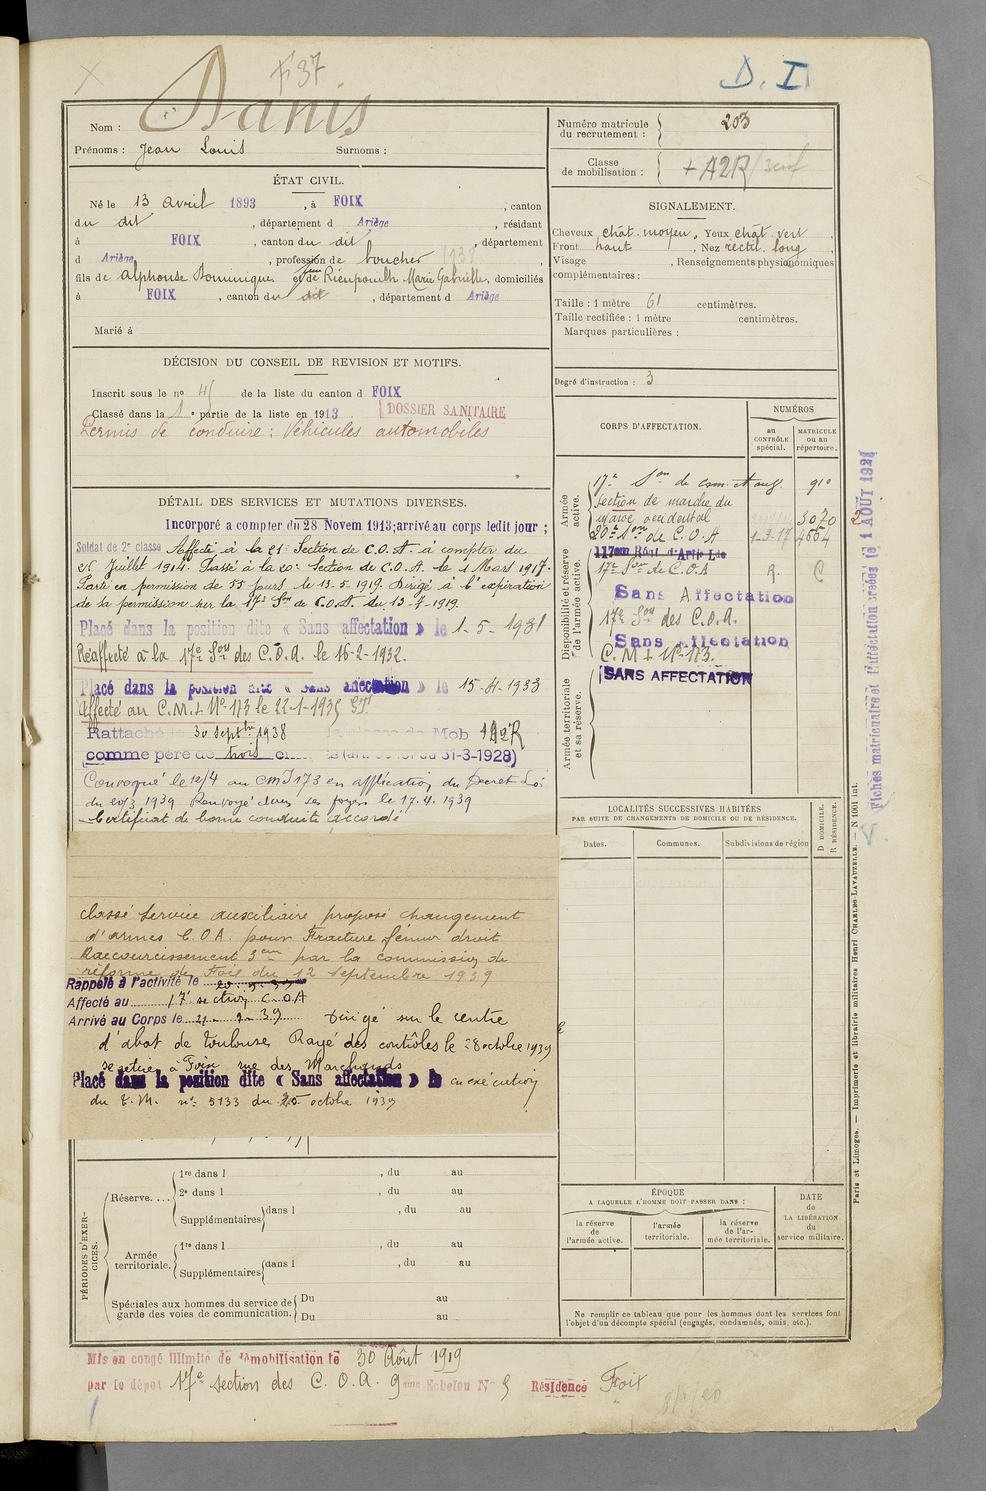 F 37
D. I
Nom : Danis
Prénoms : Jean Louis Surnoms :
ÉTAT CIVIL.
Né le 13 avril 1893, à FOIX, canton
du dit, département d Ariège, résidant
à FOIX, canton du dit, département
d Ariège, profession de boucher 1938,
fils de Alphonse Dominique et de Rieupoulh Marie Gabrielle, domiciliés
à FOIX, canton du dit, département d Ariège
Marié à
DÉCISION DU CONSEIL DE REVISION ET MOTIFS.
Inscrit sous le no 45 de la liste du canton d FOIX
Classé dans la 1e partie de la liste en 1913. DOSSIER SANITAIRE
Permis de conduire : Véhicules automobiles
DÉTAIL DES SERVICES ET MUTATIONS DIVERSES.
Incorporé a compter du 28 Novem 1913; arrivé au corps ledit jour ;
Soldat de 2e classe Affecté à la 21e Section de C.O.A. à compter du
Juillet 1914. Passé à la 20e Section de C.O.A. le 1 Mars 1917.
Parti en permission de 55 jours le 13.5.1919. Dirigé à l'expiration
de sa permission sur la 17e Son de C.O.A. du 13-7-1919.
Placé dans la position dite « Sans affectation » le 1-5-1931
Réaffecté à la 17e Son des C.O.A. le 16-2-1932.
Placé dans la position dite « Sans affectation » le 15-4-1933
Affecté au C.M.I No 173 le 22-1-1935
Rattaché le 30 septbre 1938 Mob
comme père de trois 31-3-1928)
Convoqué le 12/4 au CMI 173 en application du Décret Loi
du 20/3 1939 Renvoyé dans ses foyers le 17.4.1939
Certificat de bonne conduite accordé
Classé Service auxiliaire proposé changement
d'armes C.O.A. pour Fracture fémur droit
Raccourcissement 3cm par la commission de
réforme de Foix du 12 Septembre 1939
Rappelé à l'activité le
Affecté au 17e section C.O.A
Arrivé au Corps le 21-9-39 Dirigé sur le centre
d'abat de Toulouse Rayé des contrôles le 28 octobre 1939
se retire à Foix rue des Marchands
Placé dans la position dite « Sans affectation » le en exécution
du T.M. no 5133 du 25 octobre 1939
PÉRIODES D'EXERCICES.
Réserve....
1re dans l , du au
2e dans l , du au
Supplémentaires dans l , du au
Armée territoriale.
1re dans l , du au
Supplémentaires dans l , du au
Spéciales aux hommes du service de garde des voies de communication.
Du au
Du au
Mis en congé illimité de démobilisation le 30 Août 1919
par le dépôt 17e section des C.O.A. 9eme Echelon No 5 Résidence Foix
Numéro matricule du recrutement : 203
Classe de mobilisation : + A2R
SIGNALEMENT.
Cheveux chât. moyen, Yeux chât. vert
Front haut, Nez rectil. long
Visage , Renseignements physionomiques
complémentaires :
Taille : 1 mètre 61 centimètres.
Taille rectifiée : 1 mètre centimètres.
Marques particulières :
Degré d'instruction : 3
CORPS D'AFFECTATION.
NUMÉROS
au CONTRÔLE spécial.
MATRICULE ou au répertoire.
Armée active.
17e Son de com. et ouv. 910
Section de marche du
Maroc occidental 3070
20e Son de C.O.A 1-3-17 4664
Disponibilité et réserve de l'armée active.
117em Régt d'Artie Lde
17e Son de C.O.A R. C
Sans Affectation
17e Son des C.O.A.
Sans Affectation
C.M.I No 173.
Armée territoriale et sa réserve.
SANS AFFECTATION
LOCALITÉS SUCCESSIVES HABITÉES
PAR SUITE DE CHANGEMENTS DE DOMICILE OU DE RÉSIDENCE.
Dates.
Communes.
Subdivisions de région
D DOMICILE.
R RÉSIDENCE.
ÉPOQUE
A LAQUELLE L'HOMME DOIT PASSER DANS :
la réserve de l'armée active.
l'armée territoriale.
la réserve de l'armée territoriale.
DATE
de
LA LIBÉRATION
du
service militaire.
Ne remplir ce tableau que pour les hommes dont les services font
l'objet d'un décompte spécial (engagés, condamnés, omis, etc.).
Fiches matriculaire et d'affectation créées le 1 AOUT 192
Paris et Limoges. — Imprimerie et librairie militaires Henri CHARLES-LAVAUZELLE. — N 1001 int.